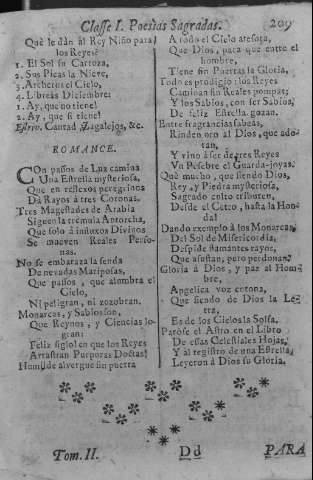 Classe I. Poesias Sagradas. 209
Què le dàn al Rey Niño para
los Reyes?
1. El Sol su Carroza,
2. Sus Picas la Nieve,
3. Archeros el Cielo,
4. Libreas Diciembre:
1. Ay, que no tiene!
2. Ay, que si tiene!
Estrivo. Cantad, Zagalejos, &c.
ROMANCE.
CON passos de Luz camina
Una Estrella mysteriosa,
Que en reflexos peregrinos
Dà Rayos à tres Coronas.
Tres Magestades de Arabia
Siguen la tremula Antorcha,
Que solo à influxos Divinos
Se mueven Reales Perso-
nas.
No se embaraza la senda
De nevadas Mariposas,
Que passos, que alumbra el
Cielo,
Ni peligran, ni zozobran.
Monarcas, y Sabios son,
Que Reynos, y Ciencias lo-
gran:
Feliz siglo! en que los Reyes
Arrastran Purporas Doctas!
Humilde alvergue sin puerta
A todo el Cielo atesora,
Que Dios, para que entre el
hombre,
Tiene sin Puertas la Gloria,
Todo es prodigio: los Reyes
Caminan sin Reales pompas;
Y los Sabios, con ser Sabios,
De feliz Estrella gozan.
Entre fragrancias Sabeas,
Rinden oro al Dios, que ado-
ran,
Y vino à ser de tres Reyes
Un Pesebre el Guarda-joyas.
Què mucho, que siendo Dios,
Rey, y Piedra mysteriosa,
Sagrado culto tributen,
Desde el Cetro, hasta la Hon-
da!
Dando exemplo à los Monarcas,
Del Sol de Misericordia,
Despide flamantes rayos,
Que assustan, pero perdonan.
Gloria à Dios, y paz al Hom-
bre,
Angelica voz entona,
Que siendo de Dios la Le-
tra,
Es de los Cielos la Solfa.
Paròse el Astro en el Libro
De essas Celestiales Hojas,
Y al registro de una Estrella,
Leyeron à Dios su Gloria.
Tom. II. Dd PARA